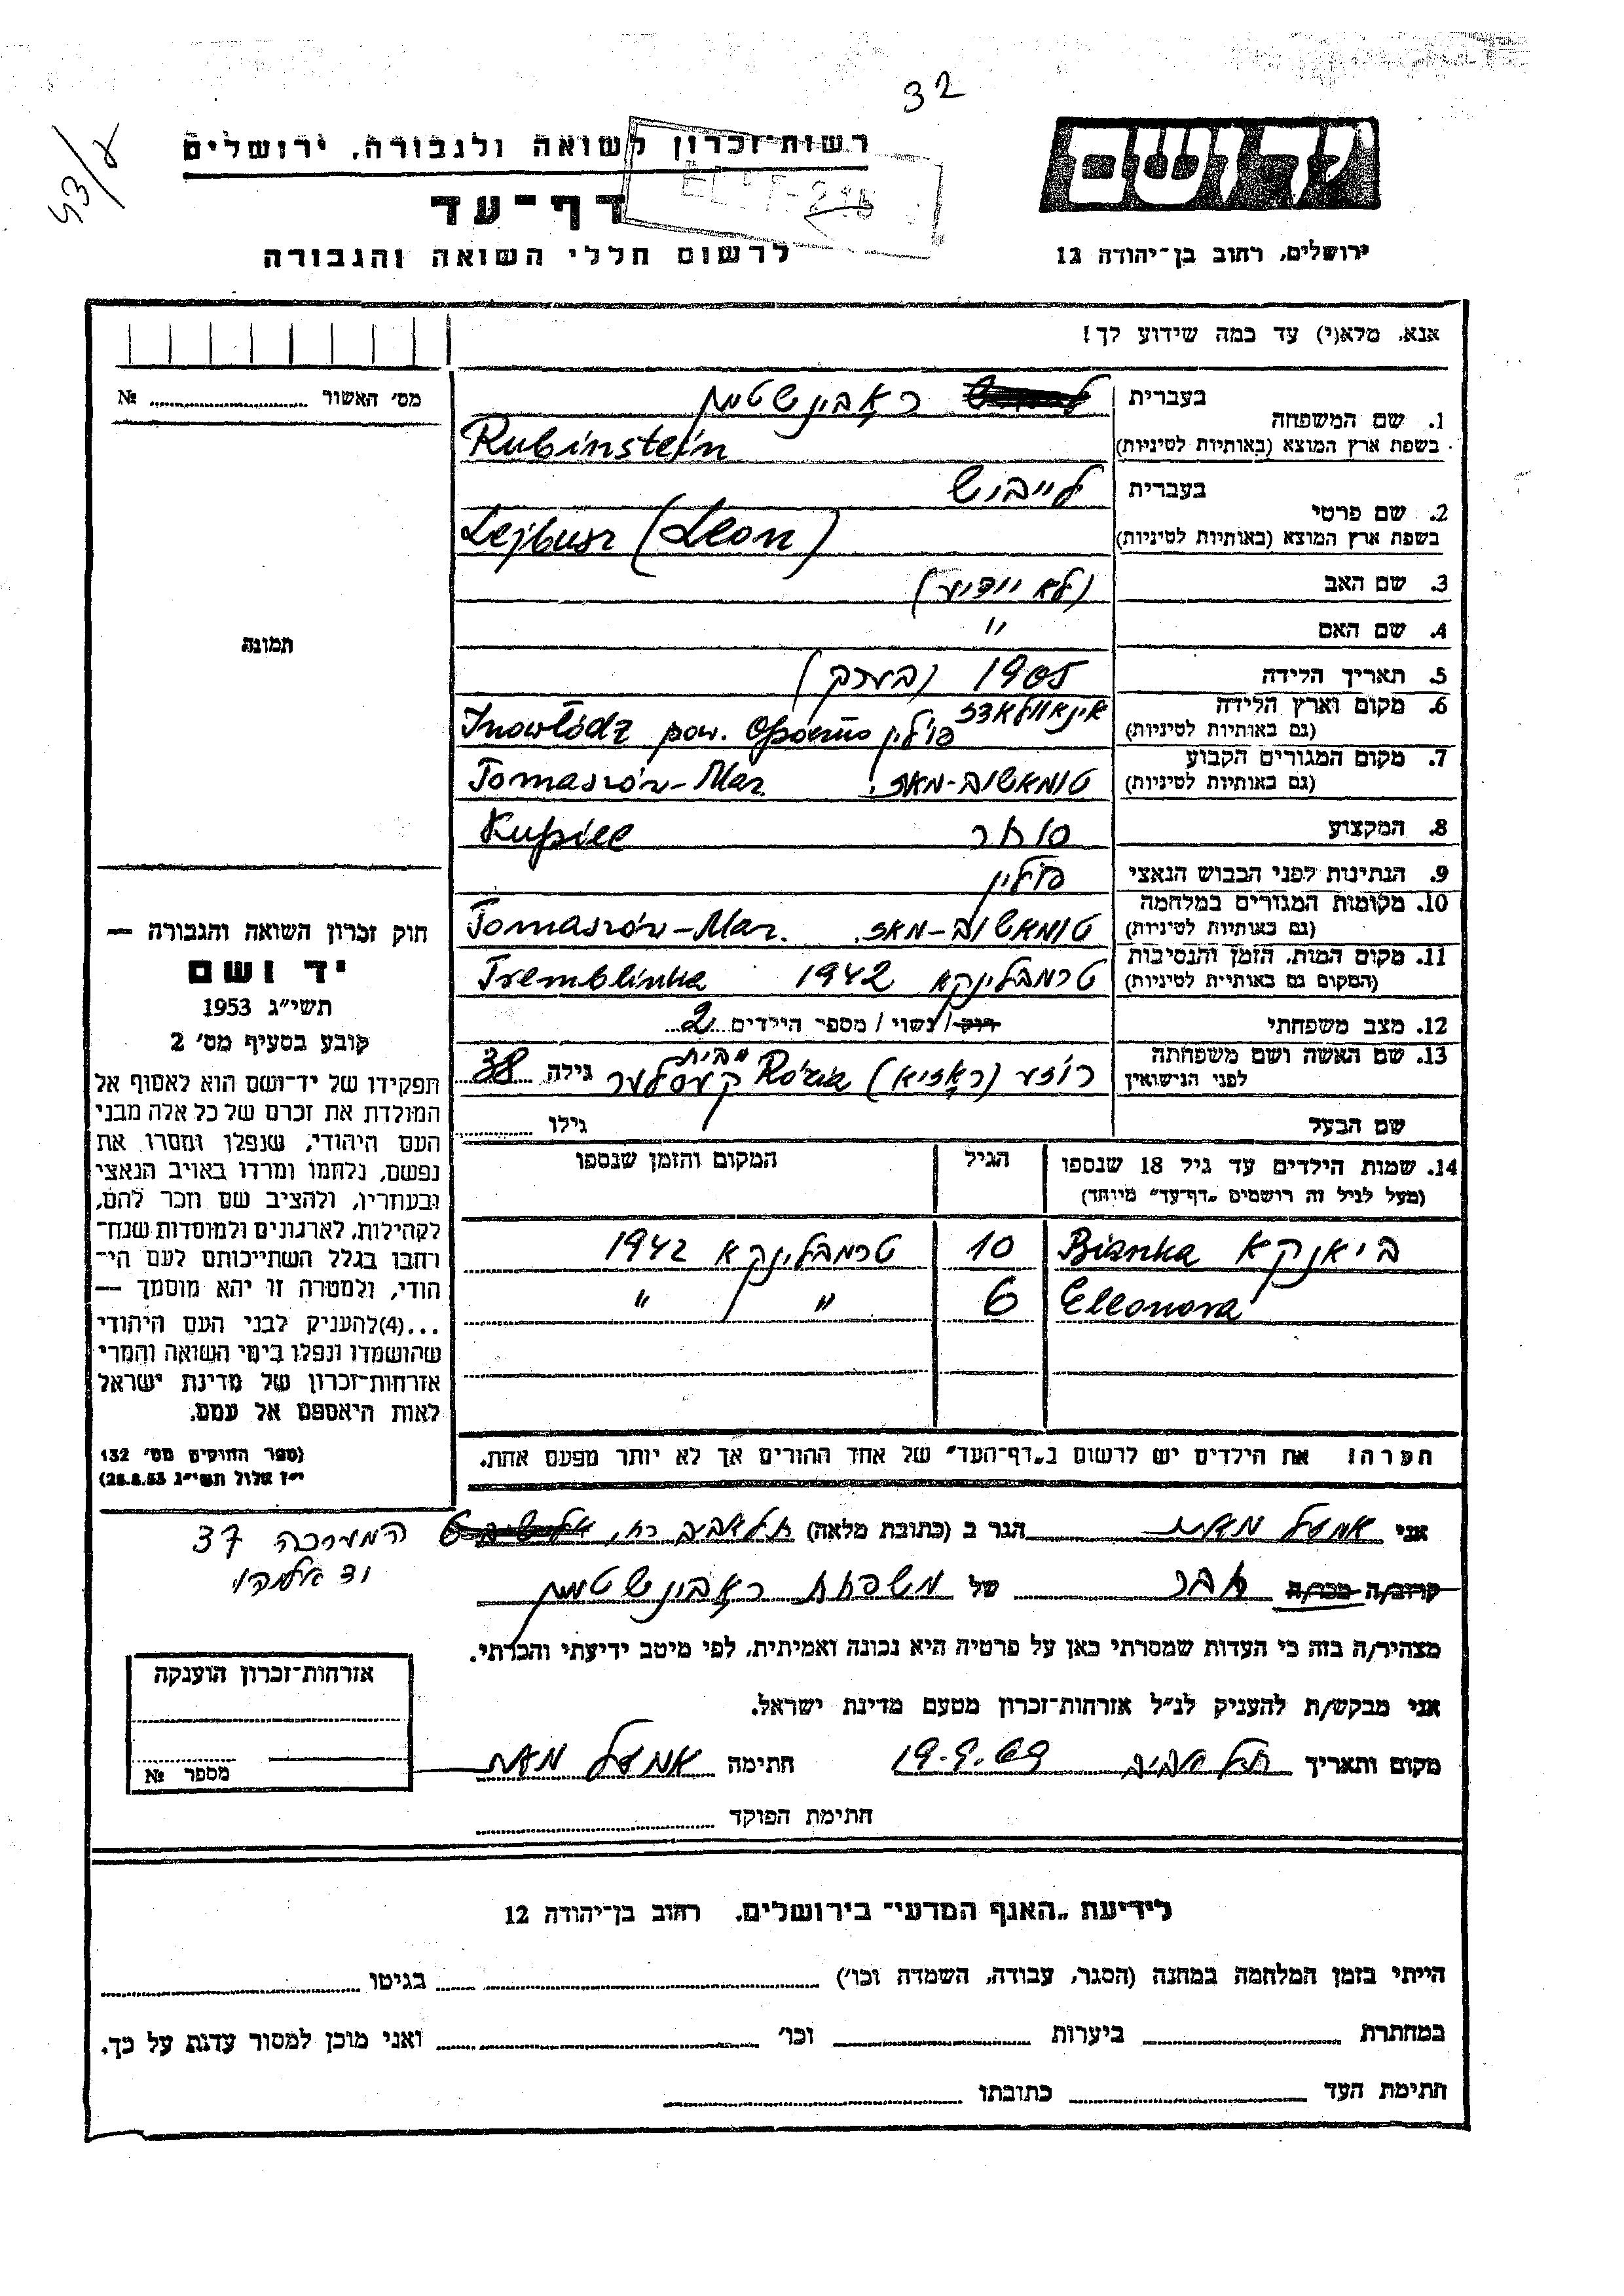 32
43/ע
רשות־זכרון לשואה ולגבורה, ירושלים
דף־עד
לרשום חללי השואה והגבורה
יד ושם
ירושלים, רחוב בן־יהודה 12
אנא, מלא(י) עד כמה שידוע לך!
מס׳ האשור № 
1. שם המשפחה בעברית ראבינשטיין
בשפת ארץ המוצא (באותיות לטיניות) Rubinstein
2. שם פרטי בעברית לייביש
בשפת ארץ המוצא (באותיות לטיניות) Lejbusz (Leon)
3. שם האב (לא יודיע)
4. שם האם "
5. תאריך הלידה 1905 (בערך)
6. מקום וארץ הלידה אינאוולאדז
(גם באותיות לטיניות) פולין Inowłódz pow. Opoczno
7. מקום המגורים הקבוע
(גם באותיות לטיניות) טומאשוב-מאז. Tomaszów-Maz.
8. המקצוע סוחר Kupiec
9. הנתינות לפני הכבוש הנאצי פולין
10. מקומות המגורים במלחמה
(גם באותיות לטיניות) טומאשוב-מאז. Tomaszów-Maz.
11. מקום המות, הזמן והנסיבות
(המקום גם באותיית לטיניות) טרמבלינקא 1942 Tremblinka
12. מצב משפחתי רוק/נשוי/ מספר הילדים 2
13. שם האשה ושם משפחתה
לפני הנישואין רוזע (ראזיא) Rózia מבית קעסלער גילה 38
שם הבעל גילו
14. שמות הילדים עד גיל 18 שנספו הגיל המקום והזמן שנספו
(מעל לגיל זה רושמים „דף־עד״ מיוחד)
ביאנקא Bianka 10 טרמבלינקא 1942
Eleonora 6 " "
תמונה
חוק זכרון השואה והגבורה —
יד ושם
תשי״ג 1953
קובע בסעיף מס׳ 2
תפקידו של יד־ושם הוא לאסוף אל
המולדת את זכרם של כל אלה מבני
העם היהודי, שנפלו ומסרו את
נפשם, נלחמו ומרדו באויב הנאצי
ובעוזריו, ולהציב שם וזכר להם,
לקהילות, לארגונים ולמוסדות שנח־
רחבו בגלל השתייכותם לעם הי־
הודי, ולמטרה זו יהא מוסמך —
...(4)להעניק לבני העם היהודי
שהושמדו ונפלו בימי השואה והמרי
אזרחות־זכרון של מדינת ישראל
לאות היאספם אל עמם.
(ספר החוקים מס׳ 132
י״ז אלול תשי״ג 28.8.53)
הערה! את הילדים יש לרשום ב„דף־העד״ של אחד ההורים אך לא יותר מפעם אחת.
אני הגר ב (כתובת מלאה) תל אביב רח׳ המערכה 37
יד אליהו
קרוב/ה מכר/ה חבר של משפחת ראבינשטיין
מצהיר/ה בזה כי העדות שמסרתי כאן על פרטיה היא נכונה ואמיתית, לפי מיטב ידיעתי והכרתי.
אני מבקש/ת להעניק לנ״ל אזרחות־זכרון מטעם מדינת ישראל.
מקום ותאריך תל אביב 19.9.69 חתימה
חתימת הפוקד
אזרחות־זכרון הוענקה
מספר №
לידיעת „האגף המדעי״ בירושלים, רחוב בן־יהודה 12
הייתי בזמן המלחמה במחנה (הסגר, עבודה, השמדה וכו׳) בגיטו
במחתרת ביערות וכו׳ ואני מוכן למסור עדות על כך.
חתימת העד כתובתו